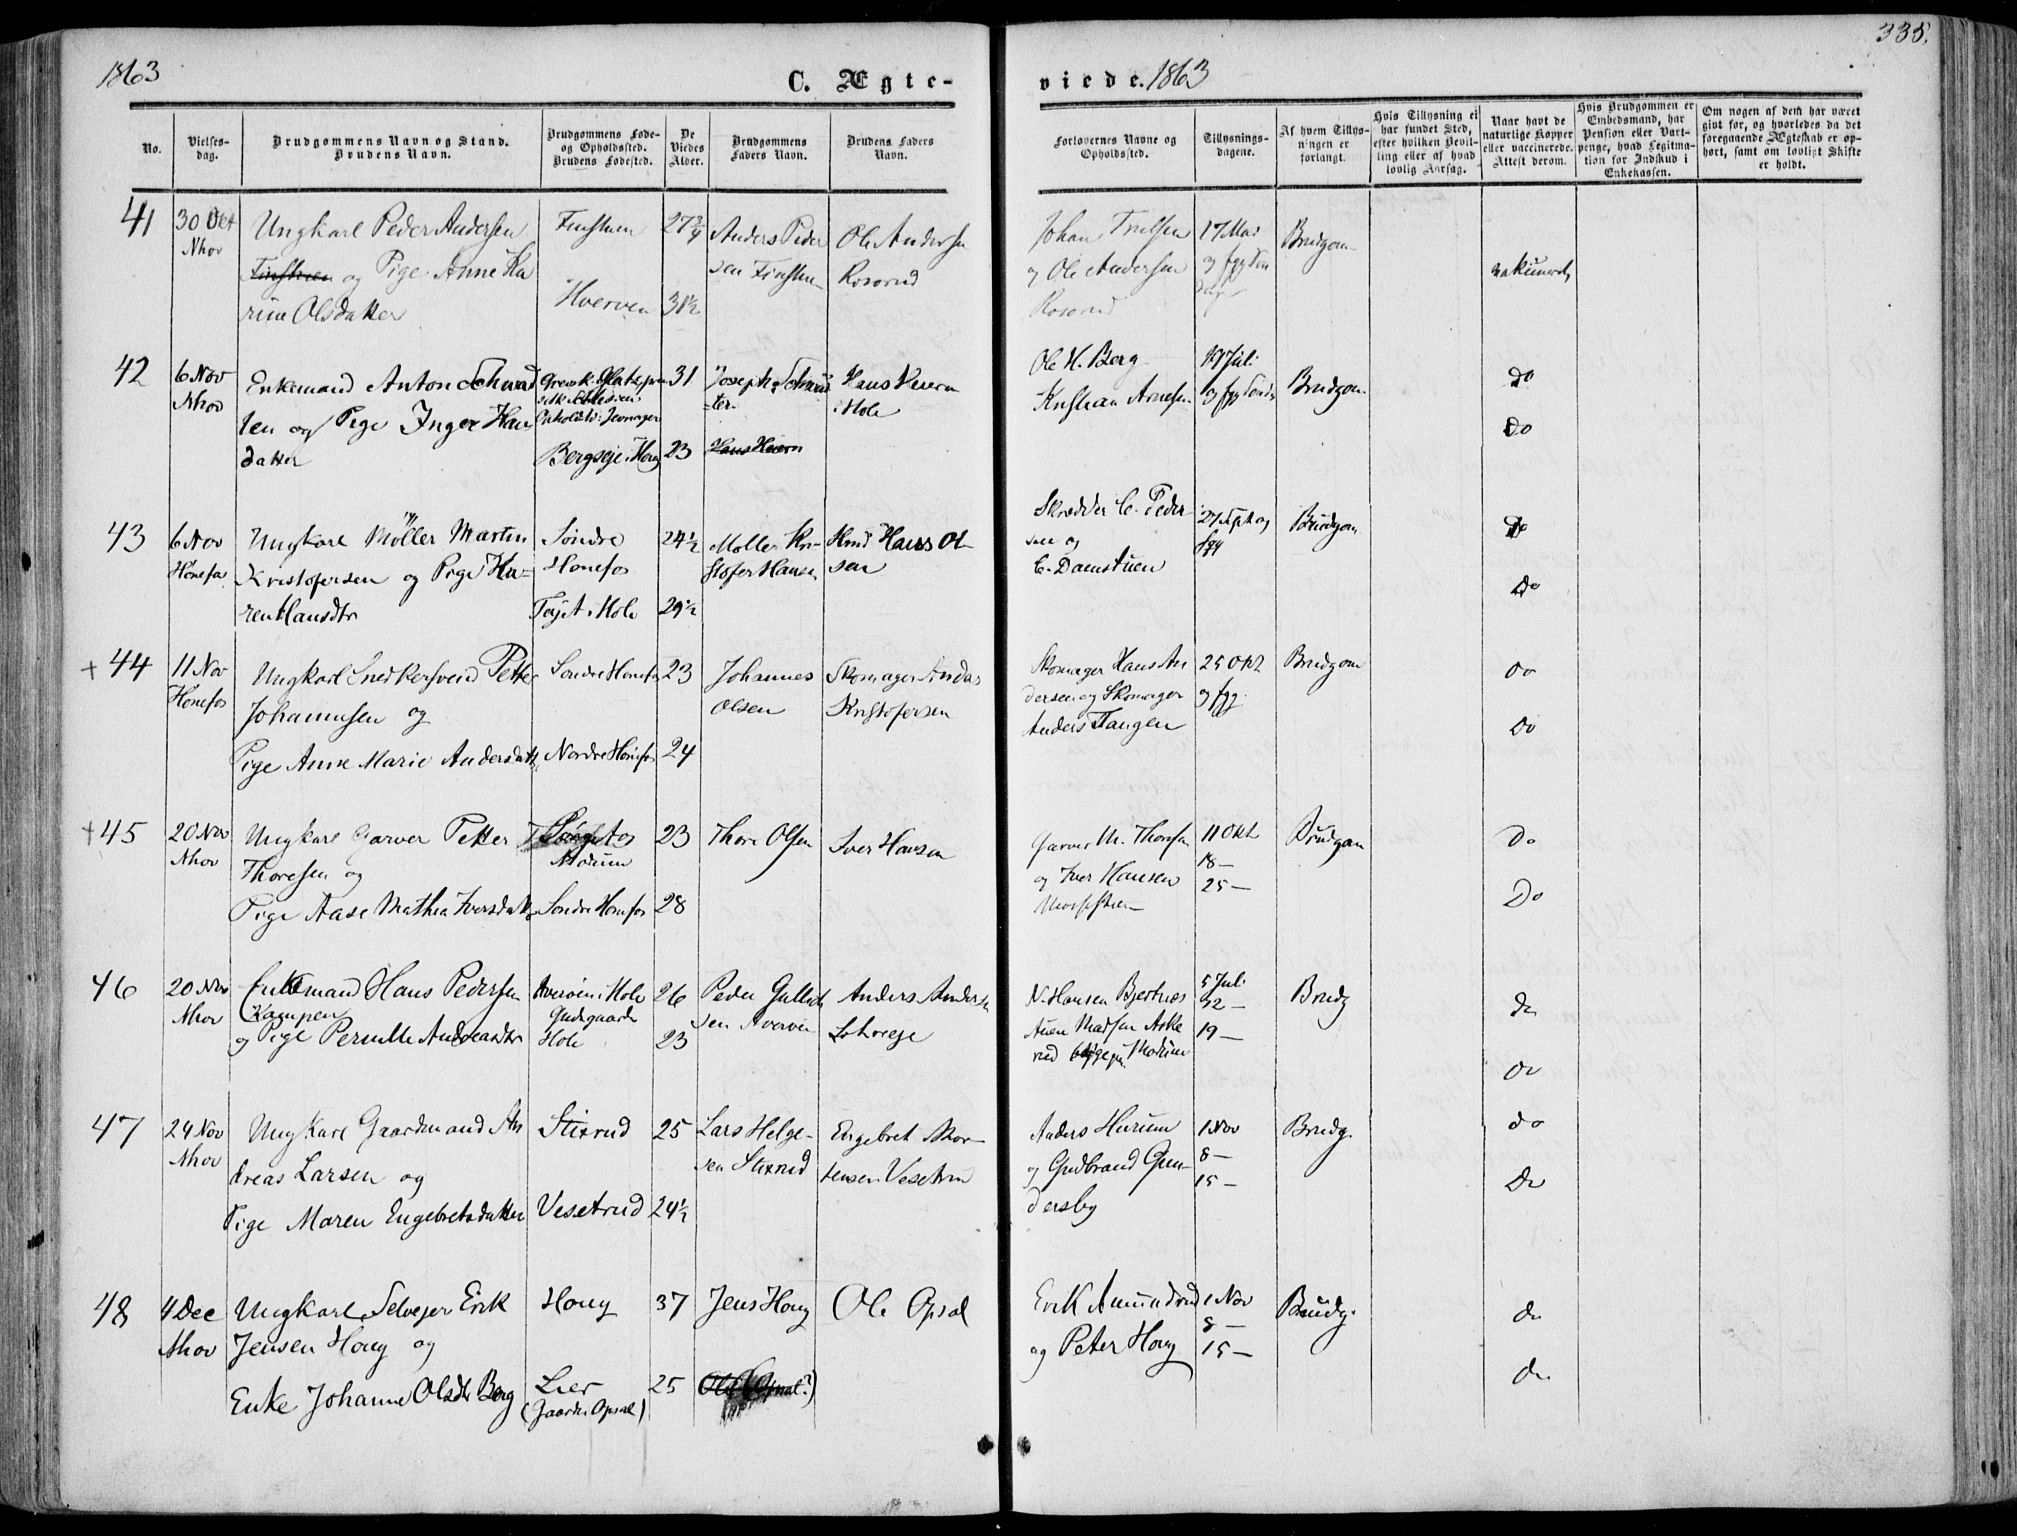 1863
C. Ægte-
viede. 1863
335.
No.
Vielses-
dag.
Brudgommens Navn og Stand.
Brudens Navn.
Brudgommens Føde-
og Opholdssted.
Brudens Fødested.
De
Viedes
Alder.
Brudgommens
Faders Navn.
Brudens Faders
Navn.
Forlovernes Navne og
Opholdssted.
Tillysnings-
dagene.
Af hvem Tillys-
ningen er
forlangt.
Hvis Tillysning ei
har fundet Sted,
efter hvilken Bevil-
ling eller af hvad
lovlig Aarsag.
Naar havt de
naturlige Kopper
eller vaccinerede.
Attest derom.
Hvis Brudgommen er
Embedsmand, har
Pension eller Vart-
penge, hvad Legitima-
tion for Indskud i
Enkekassen.
Om nogen af dem har været
givt før, og hvorledes da det
foregaaende Ægteskab er op-
hørt, samt om lovligt Skifte
er holdt.
41
30 Okt
Nhov
Ungkarl Peder Andersen
Finstuen og Pige Anne Ka
rine Olsdatter
Finstuen
Hverven
27 3/4
31 1/2
Anders Peder
sen Finstuen
Ole Andersen
Rosorud
Johan Truelsen
og Ole Andersen
Rosorud
17 Mai
og fgg Søn
dage
Brudgom
vakinerede
42
6 Nov
Nhov
Enkemand Anton
og Pige Inger Han
datter
Bergseje i Houg
31
23
Joseph
ter.
Hans Hverv
Hans
i Hole
Ole H. Berg
Kristian Arnesen
19 Juli
og fgg Sønd
Brudgom
do
do
43
6 Nov
Hønefos
Ungkarl Møller Martin
Kristofersen og Pige Ka-
ren Hansdtr
Søndre
Hønefos
i Hole
24 1/2
29 1/2
Møller Kri-
stofer Hansen
Hmd Hans Ol
sen
Skrædder C. Peder
sen og
C. Damstuen
27 Sept og
fgg
Brudgom
do
Do
+ 44
11 Nov
Hønefos
Ungkarl Snedkersvend Petter
Johannesen og
Pige Anne Marie Andersdatt
Søndre Hønefos
Nordre Hønefos
23
24
Johannes
Olsen
Skomager Anders
Kristofersen
Skomager Hans An
dersen og Skomager
Anders Tangen
25 Okt
og fgg.
Brudgom
Do
Do
+ 45
20 Nov
Nhov
Ungkarl Garver Petter
Thoresen og
Pige Aase Mathea Iversdatt
Modum
Søndre Hønefos
23
28
Thore Olsen
Iver Hansen
Garver M. Thoresen
og Iver Hansen
11 Okt
18 —
25 —
Brudgom
Do
Do
46
20 Nov
Nhov
Enkemand Hans Pedersen
(Kampen
og Pige Pernille Andreasdtr
Averøen i Hole
Gudsgaarde
Hole
26
23
Peder Gulbrdh
sen Averøen
Anders Anders
Lohreeje
N. Hansen Bjertnes
Auen Madsen Aske
rud Modum
5 Juli
12 —
19 —
Brudg
do
do
47
24 Nov
Nhov
Ungkarl Gaardmand An
dreas Larsen og
Pige Maren Engebretsdatter
Stixrud
Vesetrud
25
24 1/2
Lars Helge-
sen Stixrud
Engebret Mor-
tensen Vesetrud
Anders Hurum
og Gudbrand Gun-
dersby
1 Nov
8 —
15 —
Brudg.
do
Do
48
4 Dec
Nhov
Ungkarl Selvejer Erik
Jensen Houg og
Enke Johanne Olsdtr Berg
Houg
Lier
(Gaarden Opsal)
37
25
Jens Houg
Ole Opsal
Erik Amundrud
og Peter Houg
1 Nov
8 —
15 —
Brudg.
do
do